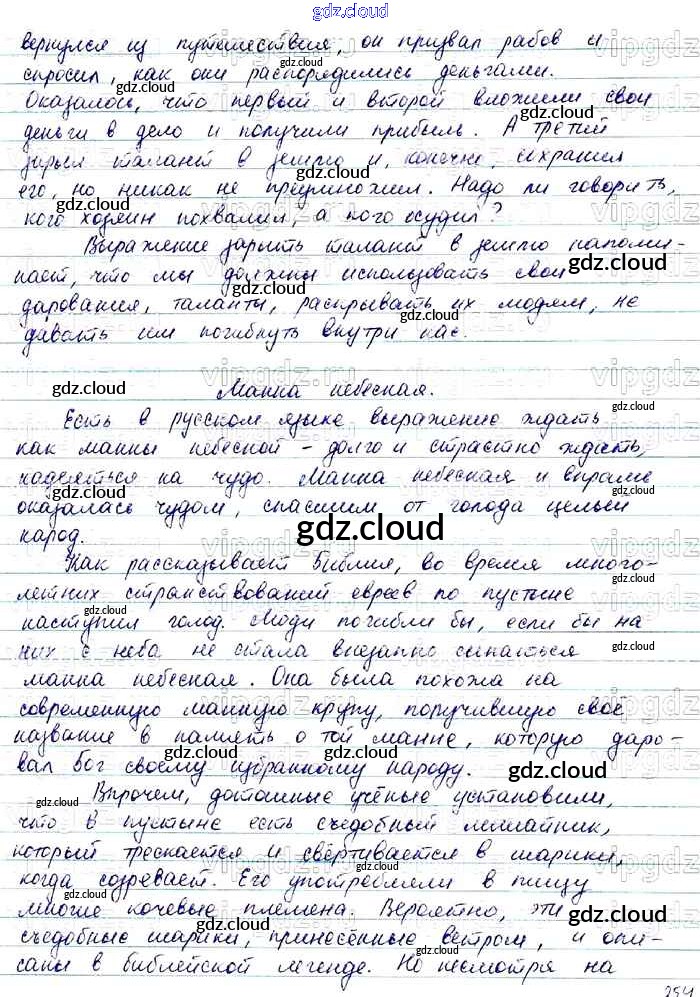 gdz.cloud
вернулся из путешествия, он призвал рабов и
спросил, как они распорядились деньгами.
Оказалось, что первый и второй вложили свои
деньги в дело и получили прибыль. А третий
зарыл талант в землю и, конечно, сохранил
его, но никак не преумножил. Надо ли говорить,
кого хозяин похвалил, а кого осудил?
Выражение зарыть талант в землю напоми-
нает, что мы должны использовать свои
дарования, таланты, раскрывать их людям, не
давать им погибнуть внутри нас.
Манна небесная.
Есть в русском языке выражение ждать
как манны небесной - долго и страстно ждать,
надеяться на чудо. Манна небесная и вправе
оказалась чудом, спасшим от голода целый
народ.
Как рассказывает Библия, во время много-
летних странствований евреев по пустыне
наступил голод. Люди погибли бы, если бы на
них с неба не стала внезапно сыпаться
манна небесная. Она была похожа на
современную манную крупу, получившую своё
название в память о той манне, которую даро-
вал Бог своему избранному народу.
Впрочем, дотошные учёные установили,
что в пустыне есть съедобный лишайник,
который трескается и свёртывается в шарики,
когда созревает. Его употребляли в пищу
многие кочевые племена. Вероятно, эти
съедобные шарики, принесённые ветром, и опи-
саны в библейской легенде. Но несмотря на
254